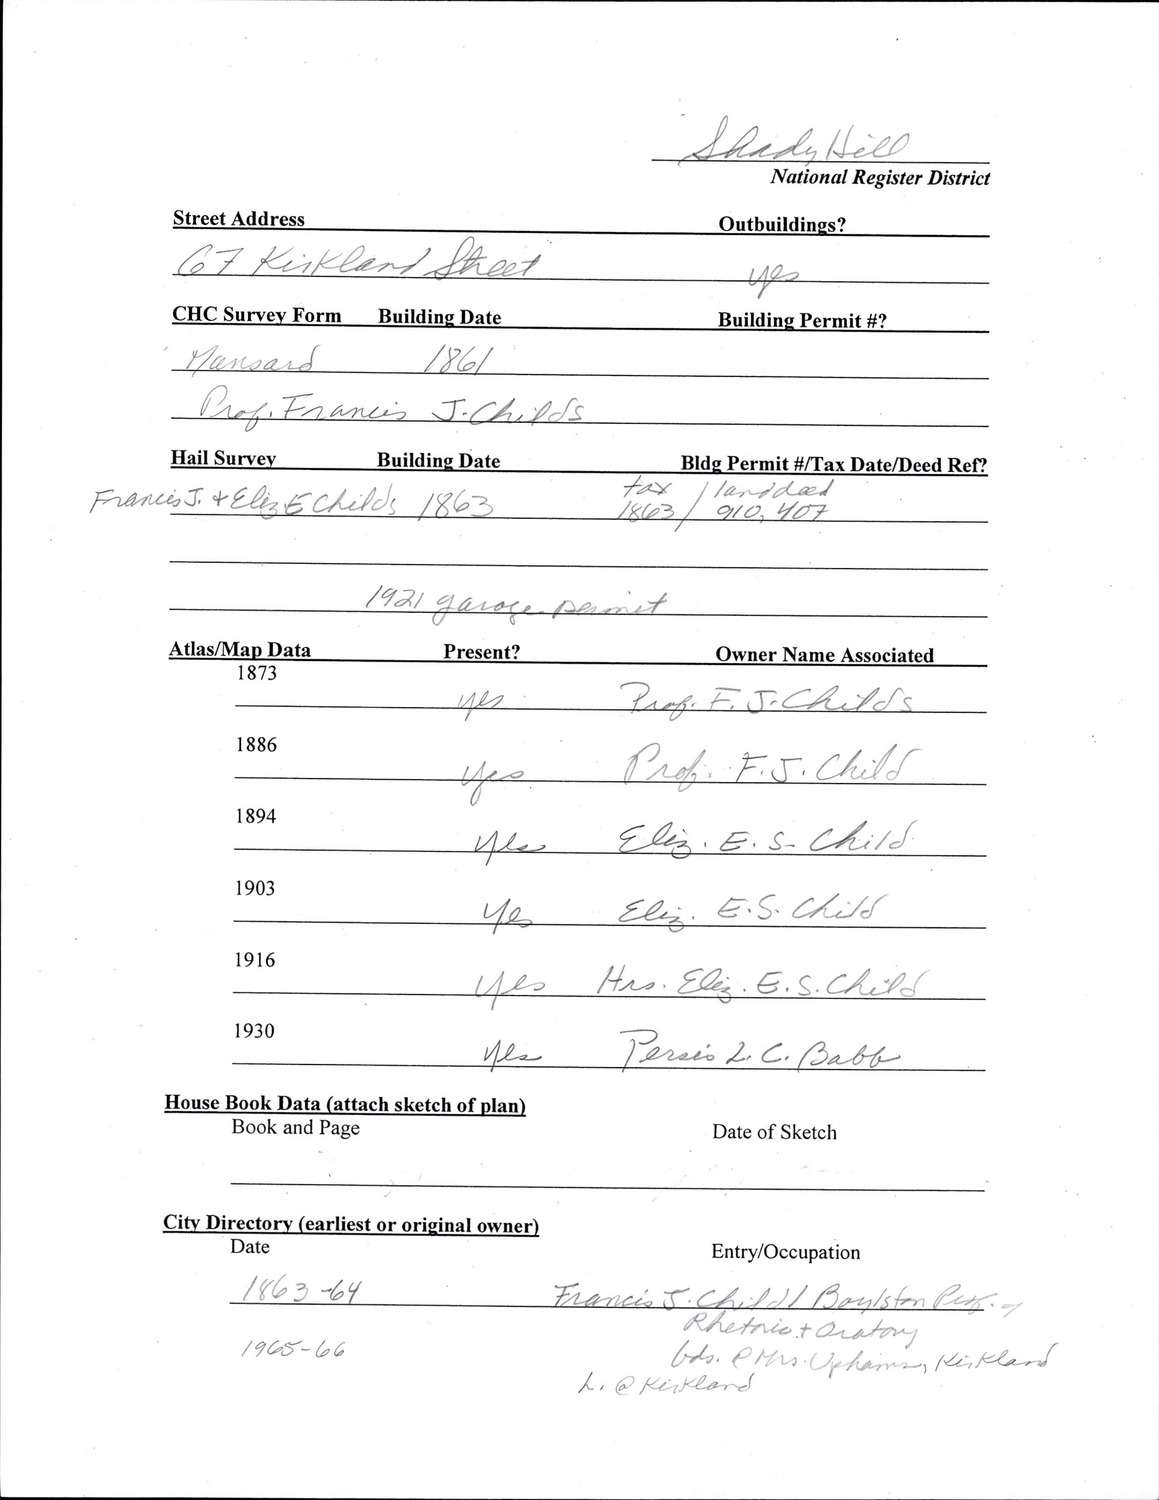 Shady Hill
National Register District
Street Address Outbuildings?
67 Kirkland Street yes
CHC Survey Form Building Date Building Permit #?
Mansard 1861
Prof. Francis J. Childs
Hail Survey Building Date Bldg Permit #/Tax Date/Deed Ref?
Francis J. + Eliz E Childs 1863 tax 1863 / land deed 910, 407
1921 garage permit
Atlas/Map Data Present? Owner Name Associated
1873
yes Prof. F. J. Childs
1886
yes Prof. F. J. Child
1894
yes Eliz. E. S. Child
1903
yes Eliz. E. S. Child
1916
yes Mrs. Eliz. E. S. Child
1930
yes Persis L. C. Babb
House Book Data (attach sketch of plan)
Book and Page Date of Sketch
City Directory (earliest or original owner)
Date Entry/Occupation
1863-64 Francis J. Child / Boylston Prof. of
Rhetoric + Oratory
1965-66 bds. @ Mrs. Upham's, Kirkland
h. @ Kirkland